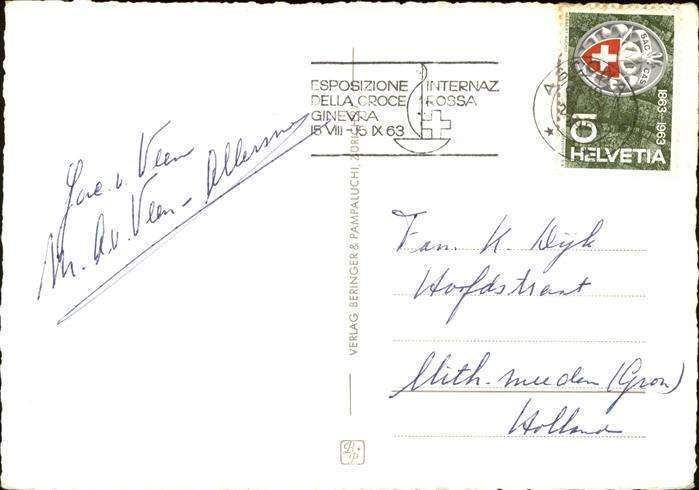 ESPOSIZIONE INTERNAZ
DELLA CROCE ROSSA
GINEVRA
15 VIII-15 IX 63
SAC CAS
1863-1963
HELVETIA
v. Veen
v. Veen -
VERLAG BERINGER & PAMPALUCHI, ZÜRICH
Fam. K. Dijk
Hoofdstraat
Uith. meeden (Gron)
Holland
B.P